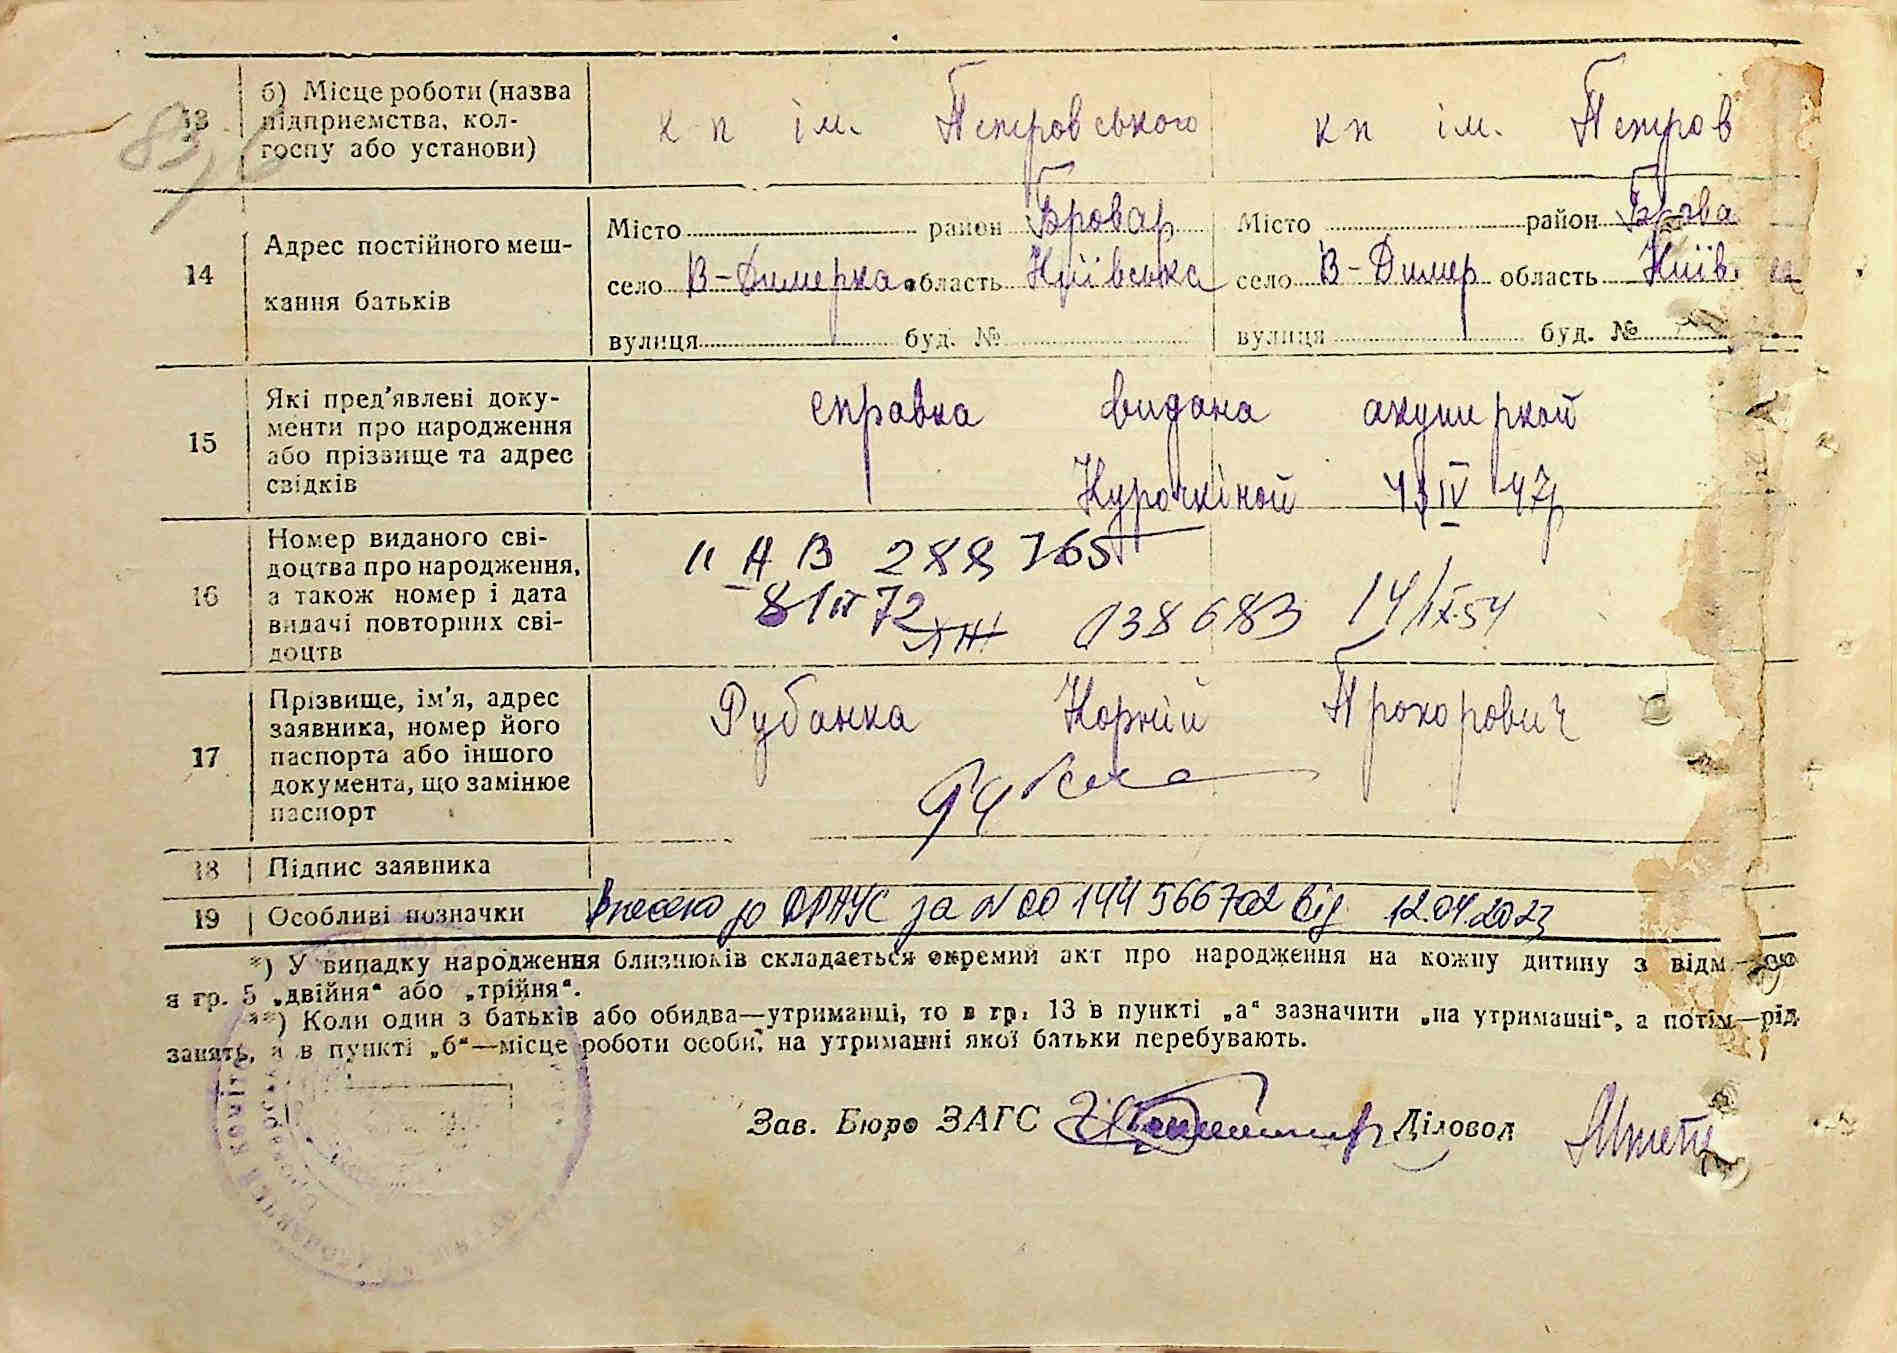 13 б) Місце роботи (назва підприємства, колгоспу або установи) кп ім. Петровського кп ім. Петров
14 Адрес постійного мешкання батьків
Місто район Бровар Місто район Брова
село В-Димерка область Київська село В-Димер область Київ
вулиця буд. № вулиця буд. №
15 Які пред'явлені документи про народження або прізвище та адрес свідків
справка видана акушеркой
Курочкіной IV 47
16 Номер виданого свідоцтва про народження, а також номер і дата видачі повторних свідоцтв
72 038683 14/IX-54
17 Прізвище, ім'я, адрес заявника, номер його паспорта або іншого документа, що замінює паспорт
Рубанка Корній Прохорович
18 Підпис заявника
19 Особливі позначки Внесено до ДРАЦС за № 00144566702 від 12.04.2023
*) У випадку народження близнюків складається окремий акт про народження на кожну дитину з відм
в гр. 5 „двійня“ або „трійня“.
**) Коли один з батьків або обидва—утриманці, то в гр. 13 в пункті „а“ зазначити „на утриманні“, а потім—рід
занять, а в пункті „б“—місце роботи особи, на утриманні якої батьки перебувають.
Зав. Бюро ЗАГС Діловод